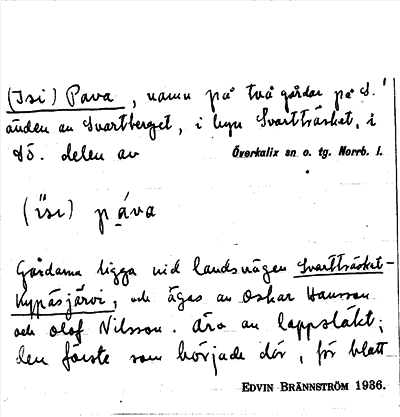 (Isi) Pava, namn på två gårdar på S.
änden av Svartberget, i byn Svartträsket, i
sö. delen av Överkalix sn o. tg. Norrb. l.
(ı̈sı) páva
Gårdarna ligga vid landsvägen Svartträsket-
Kypäsjärvi, och ägas av Oskar Hansson
och Olof Nilsson. Ära av lappsläkt;
den förste som började där, för blått
EDVIN BRÄNNSTRÖM 1936.